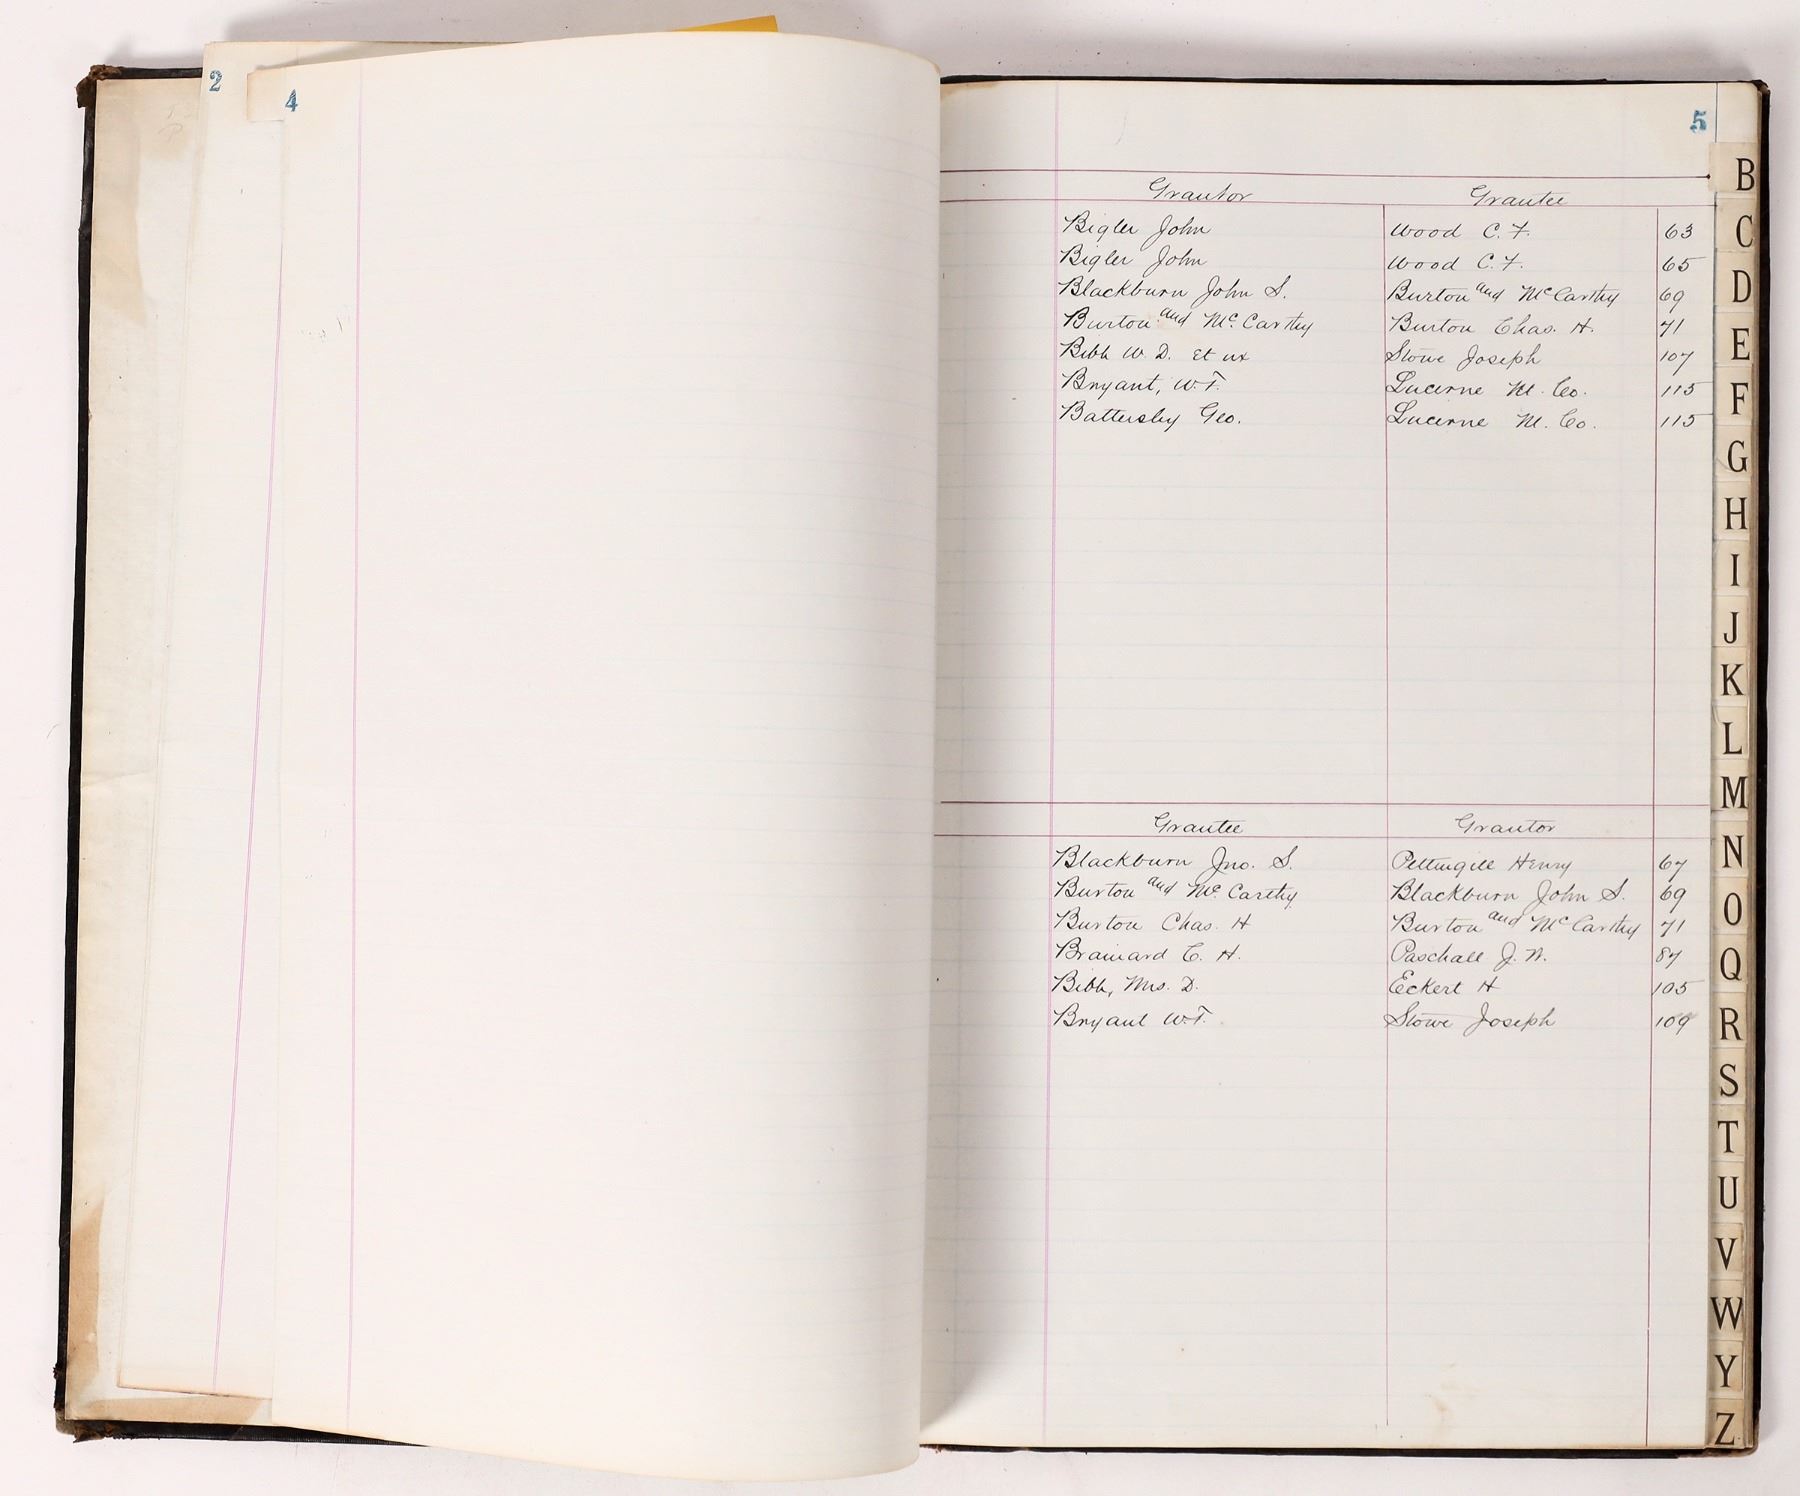 2
4
5
Grantor Grantee
Bigler John Wood C. F. 63
Bigler John Wood C. F. 65
Blackburn John S. Burton and McCarthy 69
Burton and Mc. Carthy Burton Chas. H. 71
Bibb W. D. Et ux Stowe Joseph 107
Bryant, W. T. Lucerne M. Co. 115
Battersby Geo. Lucerne M. Co. 115
Grantee Grantor
Blackburn Jno. S. Pettingill Henry 67
Burton and Mc. Carthy Blackburn John S. 69
Burton Chas. H Burton and McCarthy 71
Brainard C. H. Paschall J. N. 87
Bibb, Mrs. D. Eckert H 105
Bryant W. T. Stowe Joseph 109
B
C
D
E
F
G
H
I
J
K
L
M
N
O
Q
R
S
T
U
V
W
Y
Z